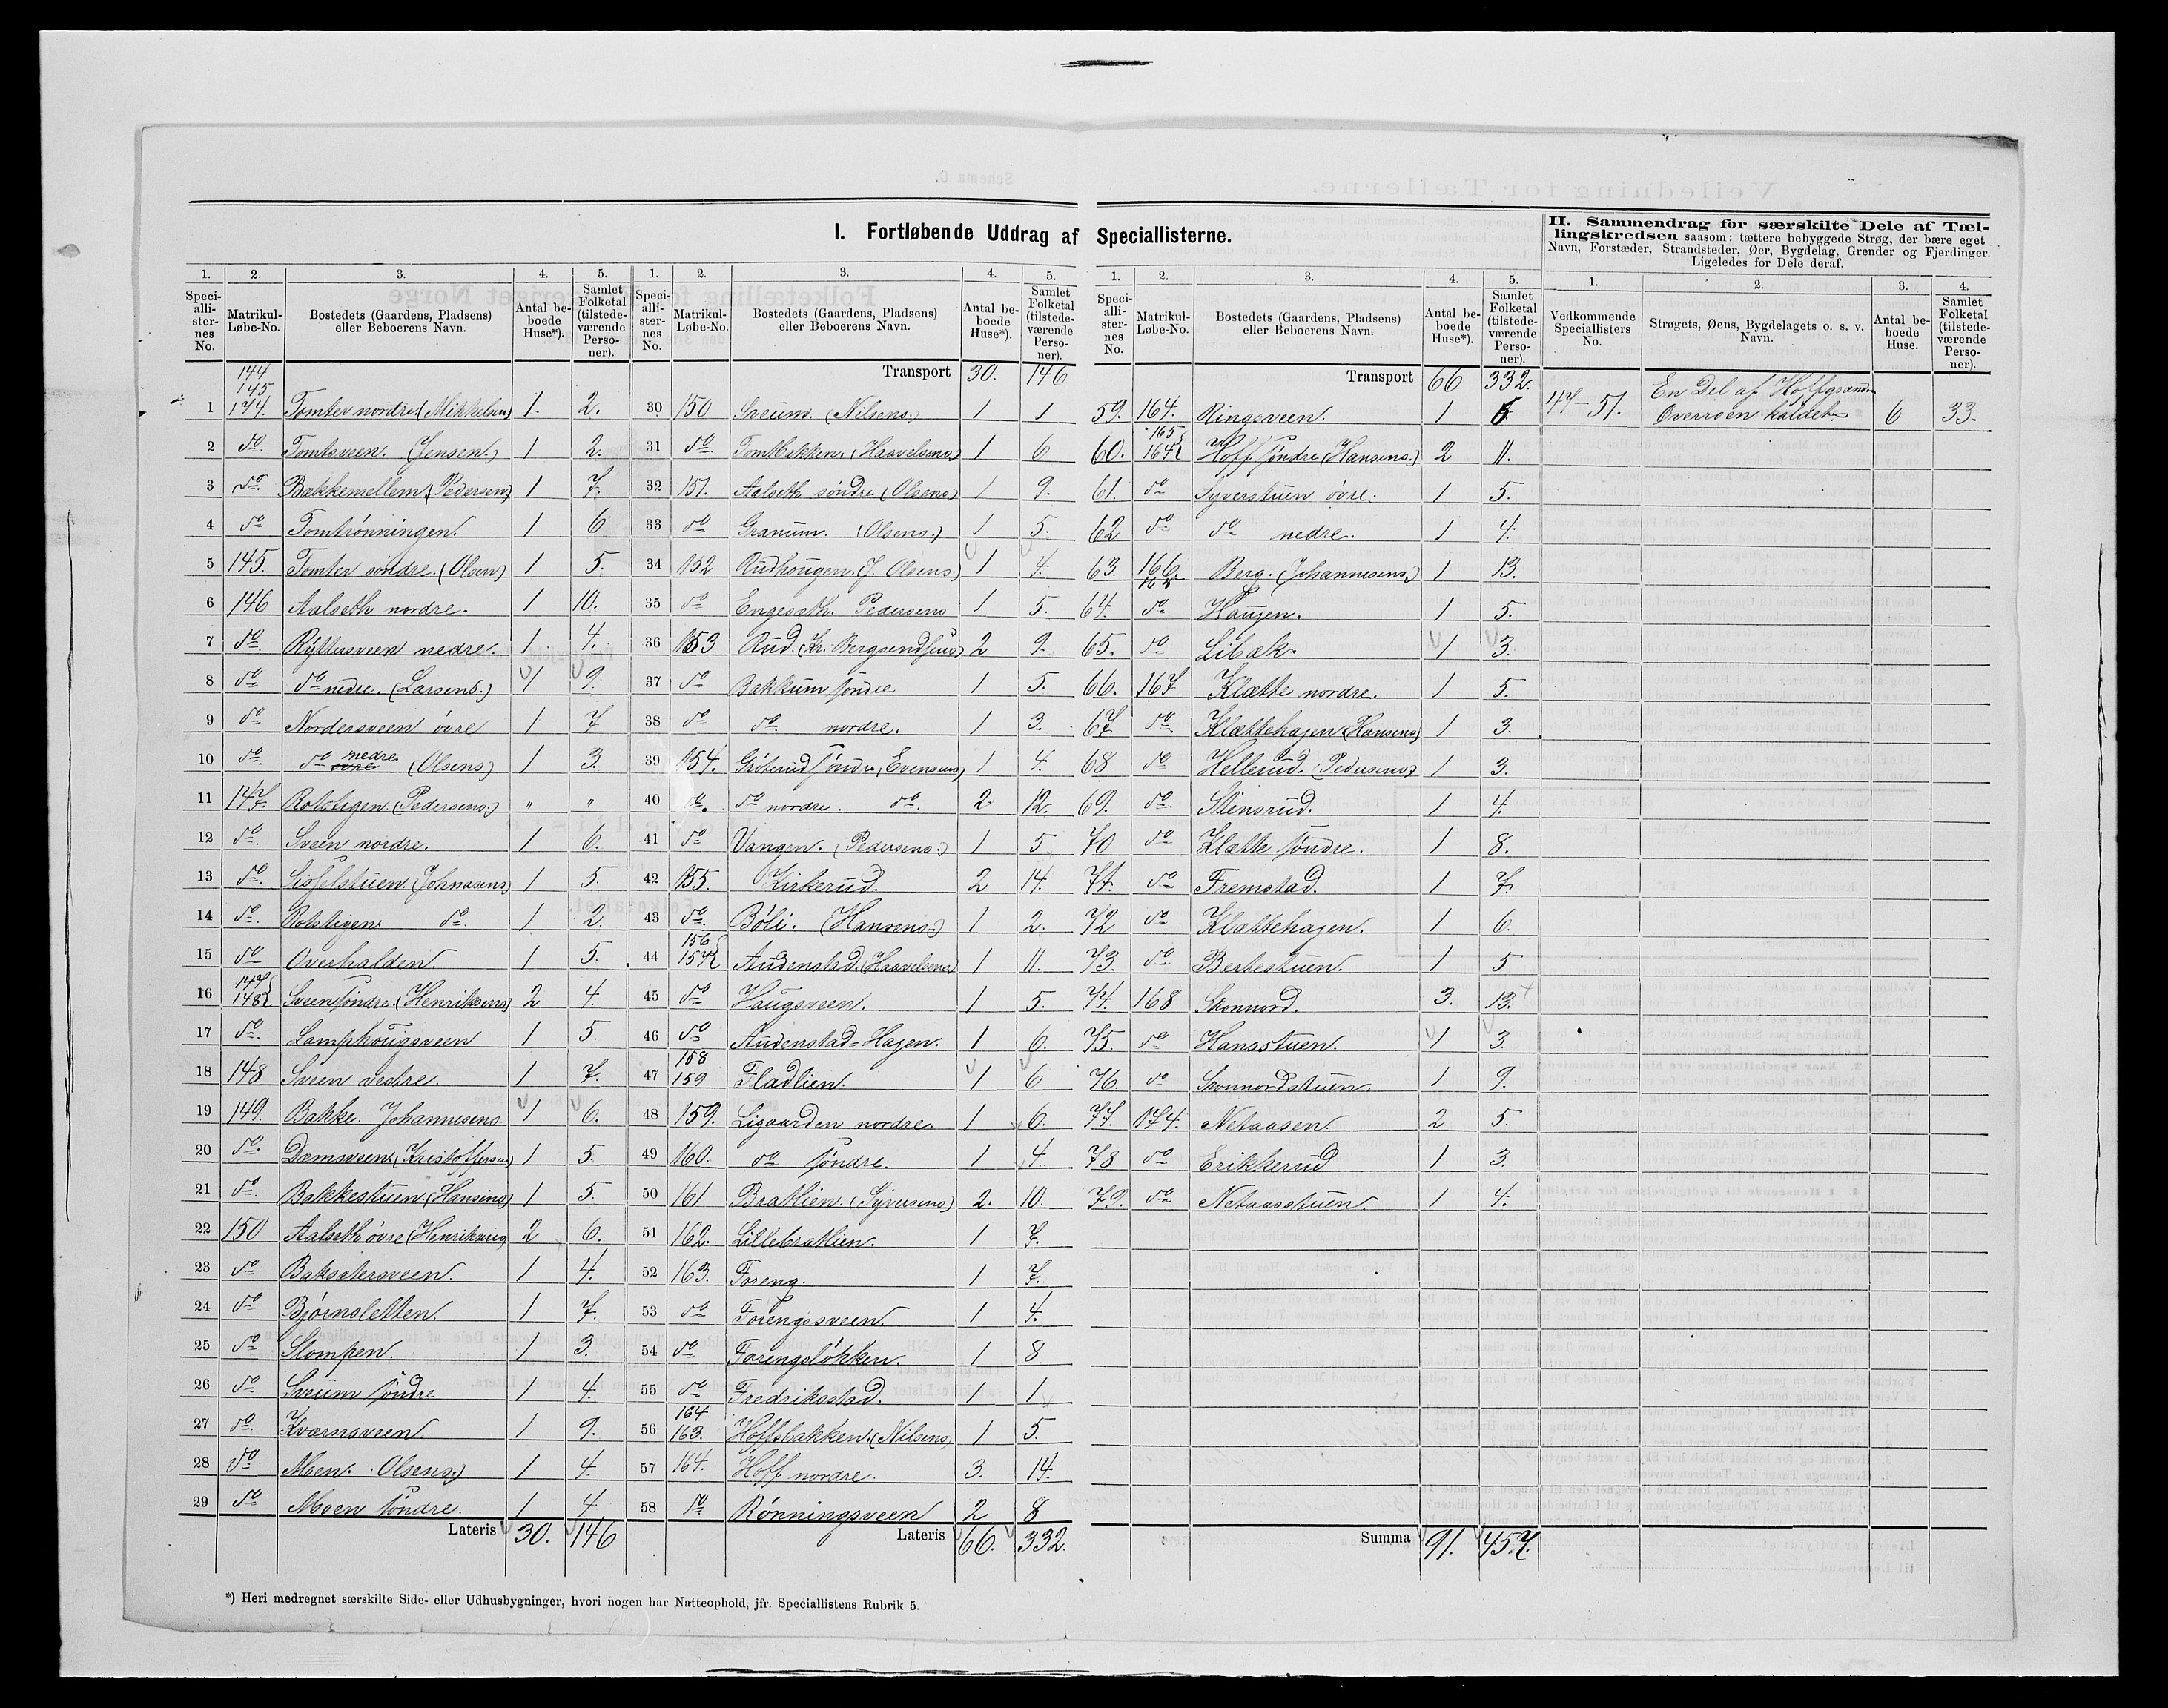 I. Fortløbende Uddrag af Speciallisterne.
II. Sammendrag for særskilte Dele af Tæl-
lingskredsen saasom: tættere bebyggede Strøg, der bære eget
Navn, Forstæder, Strandsteder, Øer, Bygdelag, Grender og Fjerdinger.
Ligeledes for Dele deraf.
1. 2. 3. 4. 5.
Speciallisternes No. Matrikul-Løbe-No. Bostedets (Gaardens, Pladsens) eller Beboerens Navn. Antal beboede Huse*). Samlet Folketal (tilstedeværende Personer).
144 145
1 144. Tomter nordre (Mikkelsen) 1. 2.
2 do. Tomtsveen. (Jensen.) 1 2.
3 do. Bakkemellem (Pedersens) 1 7.
4 do Tomtrønningen. 1 6
5 145. Tomter søndre. (Olsen) 1 5.
6 146 Aalseth nordre. 1 10.
7 do. Ryttersveen nedre. 1. 4.
8 do do nedre. (Larsens.) 1 9.
9 do Nordersveen øvre 1 7
10 do. do nedre (Olsens) 1 3.
11 147. Rotstigen (Pedersens.) " "
12 do. Sveen nordre. 1 6.
13 do. Sisselstuen. (Johnasens) 1 5.
14 do. Rotstigen. do. 1 2.
15 do Overhalden. 1 5.
16 147 148 Sveen søndre. (Henriksens) 2 4.
17 do. Lamphougsveen 1 5.
18 148 Sveen vestre. 1 7.
19 149. Bakke. Johannesens 1 6.
20 do. Damsveen. (Kristoffersens) 1 5.
21 do. Bakkestuen. (Hansens) 1 5.
22 150 Aalseth øvre (Henriksens) 2 6.
23 do Baksetersveen. 1 4.
24 do Bjørnsletten. 1 7.
25 do Slompen. 1 3.
26 do Sveum søndre 1 4.
27 do. Kværnsveen. 1 9.
28 do Moen. Olsens.) 1 4.
29 do Moen søndre. 1 4
Lateris 30. 146
1. 2. 3. 4. 5.
Speciallisternes No. Matrikul-Løbe-No. Bostedets (Gaardens, Pladsens) eller Beboerens Navn. Antal beboede Huse*). Samlet Folketal (tilstedeværende Personer).
Transport 30. 146
30 150 Sveum. (Nilsens.) 1 1
31 do Tomtbakken. (Haavelsens) 1 6
32 151. Aalseth søndre. (Olsens) 1 9.
33 do Granum. (Olsens.) 1 5.
34 152 Rudhougen. (J. Olsens.) 1 4.
35 do Engeseth. Pedersens 1 5.
36 153 Rud. (Kr. Bergsendsens) 2 9.
37 do Bakkum søndre 1 5.
38 do do. nordre. 1 3.
39 154. søndre, Evensens) 1 4.
40 do. do nordre. do. 2. 12.
41 do Vangen. (Pedersens.) 1 5
42 155. Kirkerud. 2 14.
43 do. Bøli. (Hansens.) 1 2.
44 156 157 Audenstad. (Haavelsens) 1 11.
45 do Haugsveen. 1 5.
46 do Audenstad-Hagen. 1 6.
47 158 159 Fladlien. 1 6
48 159. Ligaarden nordre. 1 6.
49 160. do søndre. 1 4.
50 161 Bratlien. (Syversens) 2. 10.
51 162. Lillebratlien. 1 7.
52 163. Foreng. 1 7.
53 do Forengsveen. 1 4.
54 do Forengsløkken. 1 8
55 do Fredriksstad. 1 1
56 164 163. Hoffsbakken. (Nilsens) 1 5.
57 164. Hoff nordre. 3. 14.
58 do Rønningsveen 2 8
Lateris 66. 332.
1. 2. 3. 4. 5.
Speciallisternes No. Matrikul-Løbe-No. Bostedets (Gaardens, Pladsens) eller Beboerens Navn. Antal beboede Huse*). Samlet Folketal (tilstedeværende Personer).
Transport 66 332.
59. 164. Ringsveen. 1
60. 165 164 Hoff søndre (Hansens.) 2 11.
61. do Syverstuen øvre. 1 5.
62 do do nedre. 1 4.
63. 166. 165 Berg. (Johannesens.) 1 13.
64. do Haugen. 1 5.
65. do Libæk. 1 3.
66. 167 Klætte nordre. 1 5.
67 do. Klættehagen (Hansens) 1 3.
68 do Hellerud. (Pedersens) 1 3.
69. do. Stensrud. 1 4.
70 do Klætte søndre. 1 8.
71. do Fremstad. 1 7.
72 do Klættehagen. 1 6.
73. do Berkestuen. 1 5
74. 168 Skonnord. 3. 13.
75. do Hansstuen. 1 3.
76. do Skonnordstuen. 1 9.
77. 174. Netaasen. 2 5.
78 do Erikkerud 1 3.
79. do Netaasstuen. 1 4.
Summa 91. 457.
1. 2. 3. 4.
Vedkommende Speciallisters No. Strøgets, Øens, Bygdelagets o. s. v. Navn. Antal beboede Huse. Samlet Folketal (tilstedeværende Personer).
47-51. En Del af Hoffgranden
Overroen kaldet 6 33.
*) Heri medregnet særskilte Side- eller Udhusbygninger, hvori nogen har Natteophold, jfr. Speciallistens Rubrik 5.